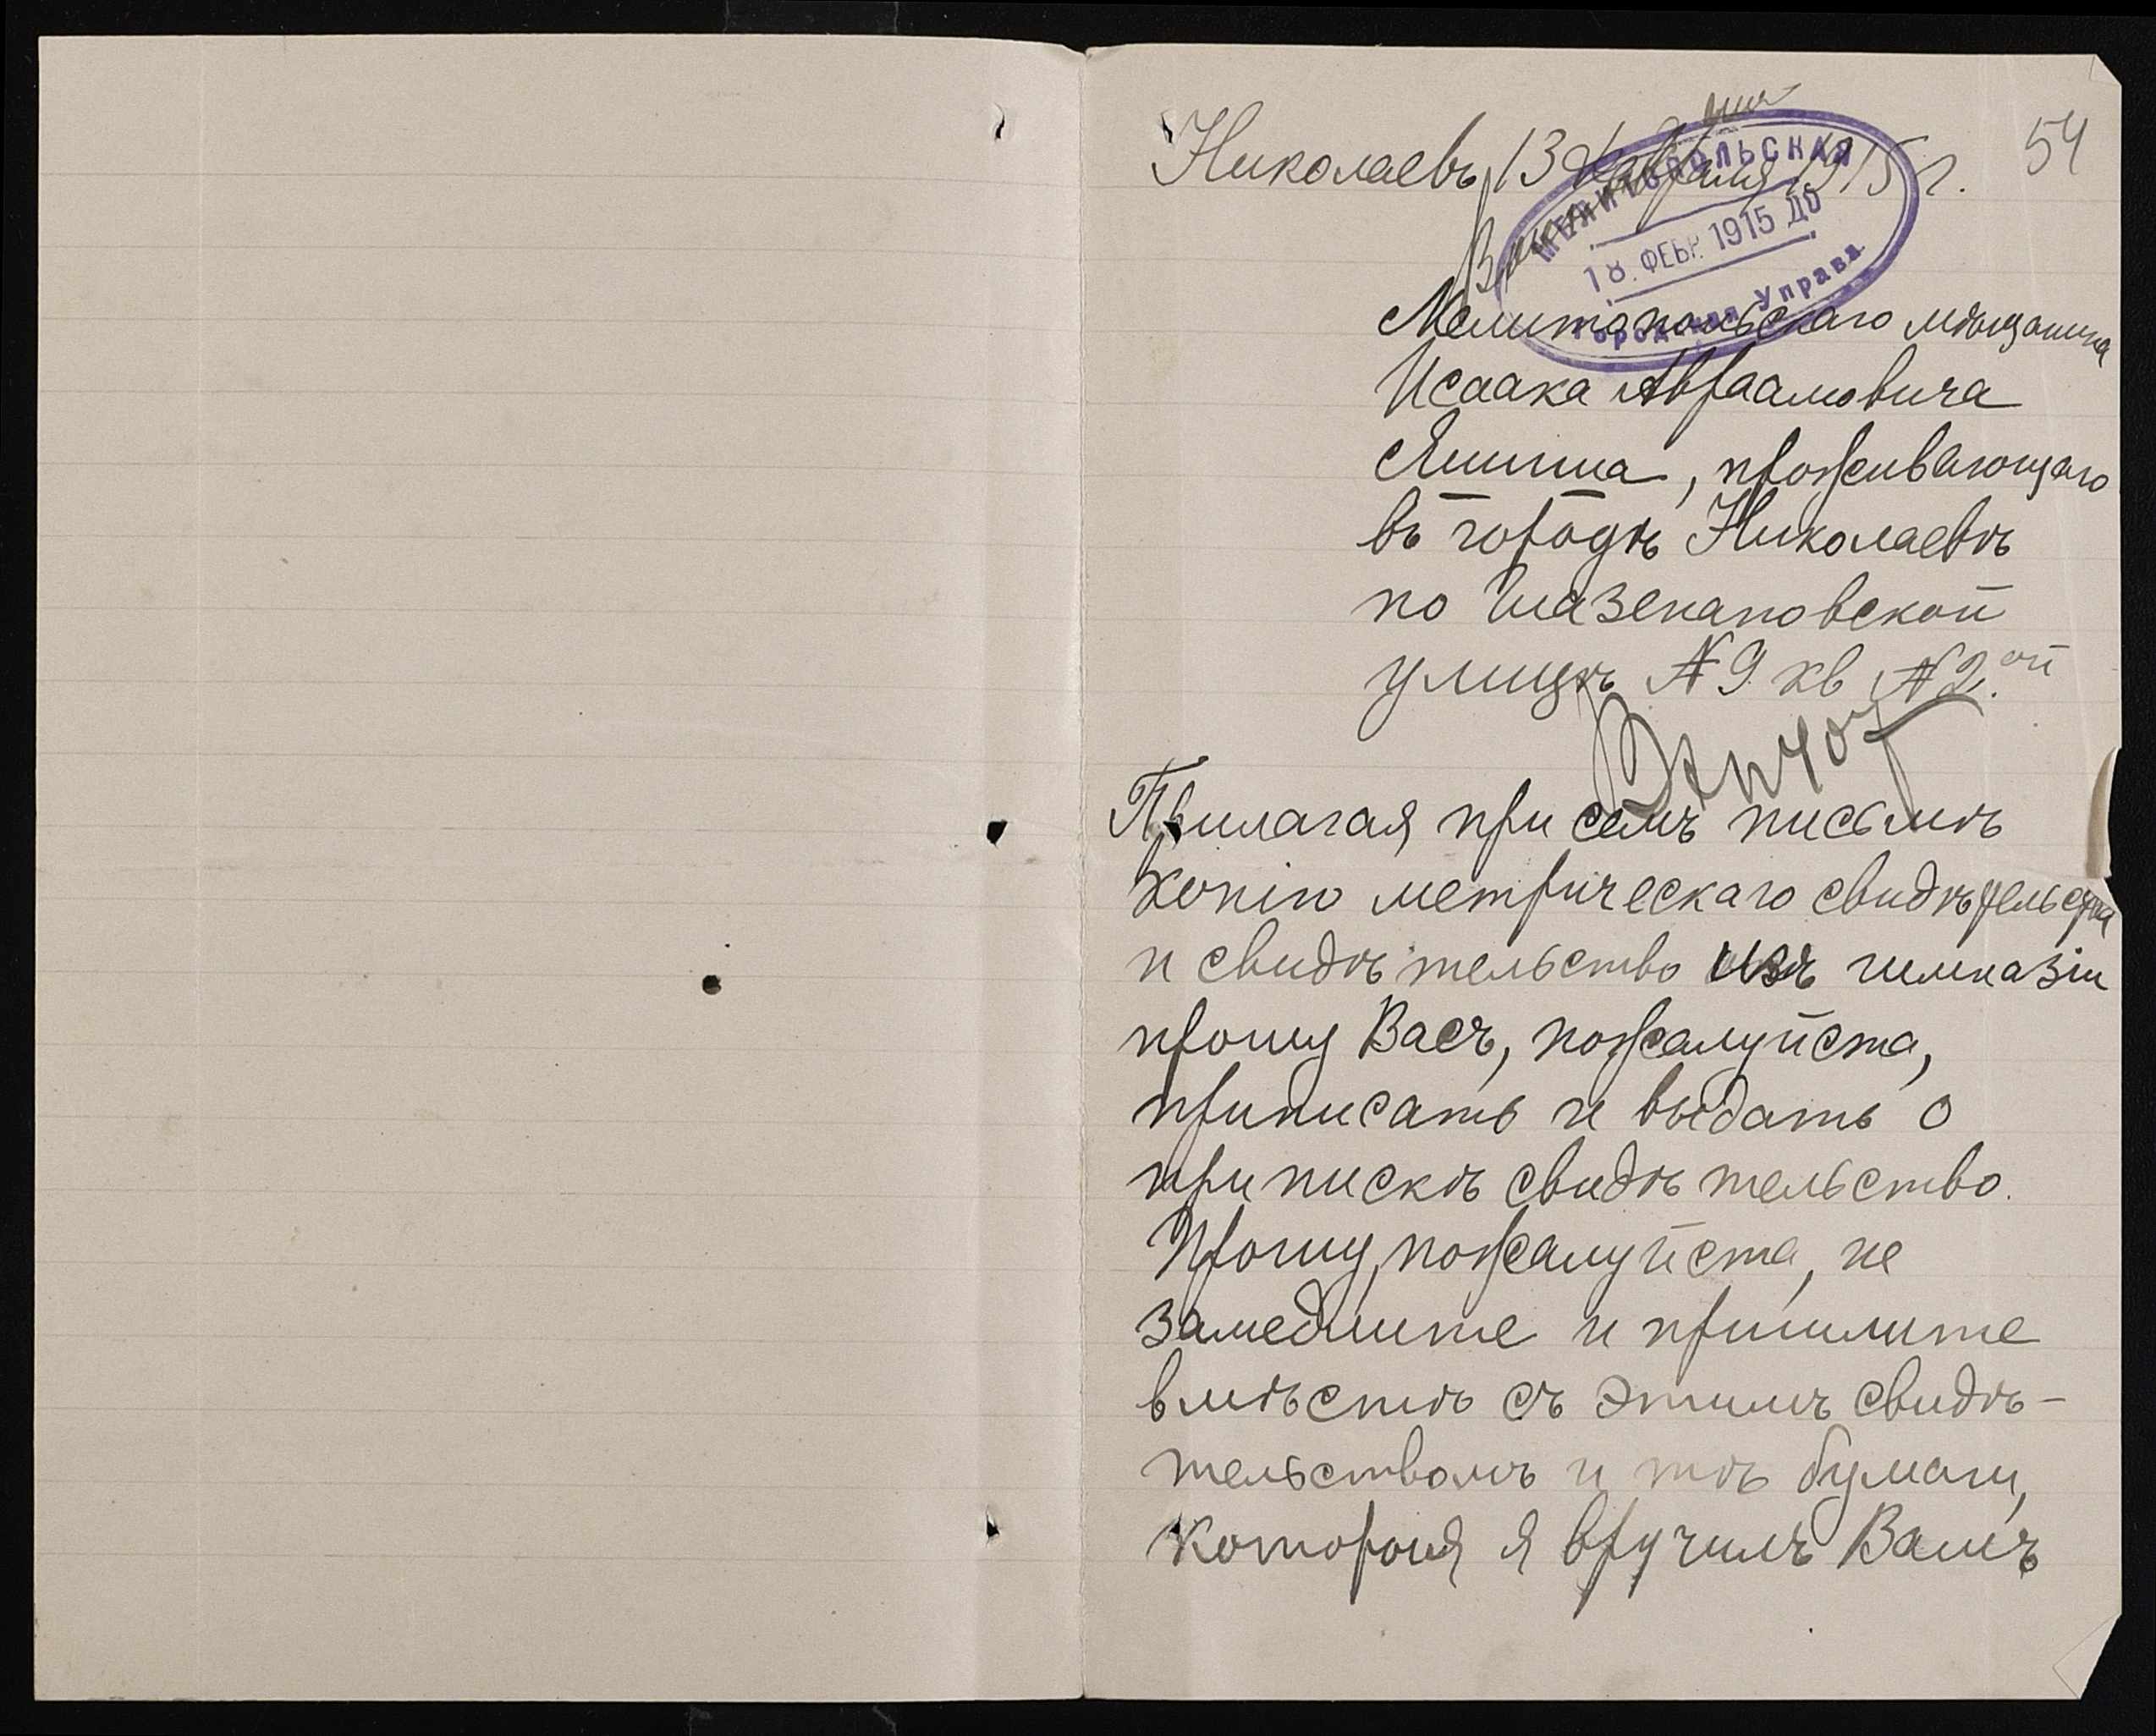 54
Николаевъ, 13 февраля 1915 г.
МЕЛИТОПОЛЬСКАЯ
18. ФЕБР. 1915 ДО
Городская Управа
Мелитопольскаго мѣщанина
Исаака Авраамовича
проживающаго
въ городѣ Николаевѣ
по Глазенаповской
улицѣ № 9 кв № 2.ой
Прилагая при семъ письмѣ
копію метрическаго свидѣтельства
и свидѣтельство изъ гимназіи
прошу Васъ, пожалуйста,
приписать и выдать о
припискѣ свидѣтельство.
Прошу, пожалуйста, не
замедлите и пришлите
вмѣстѣ съ этимъ свидѣ-
тельствомъ и тѣ бумаги,
которыя я вручилъ Вамъ